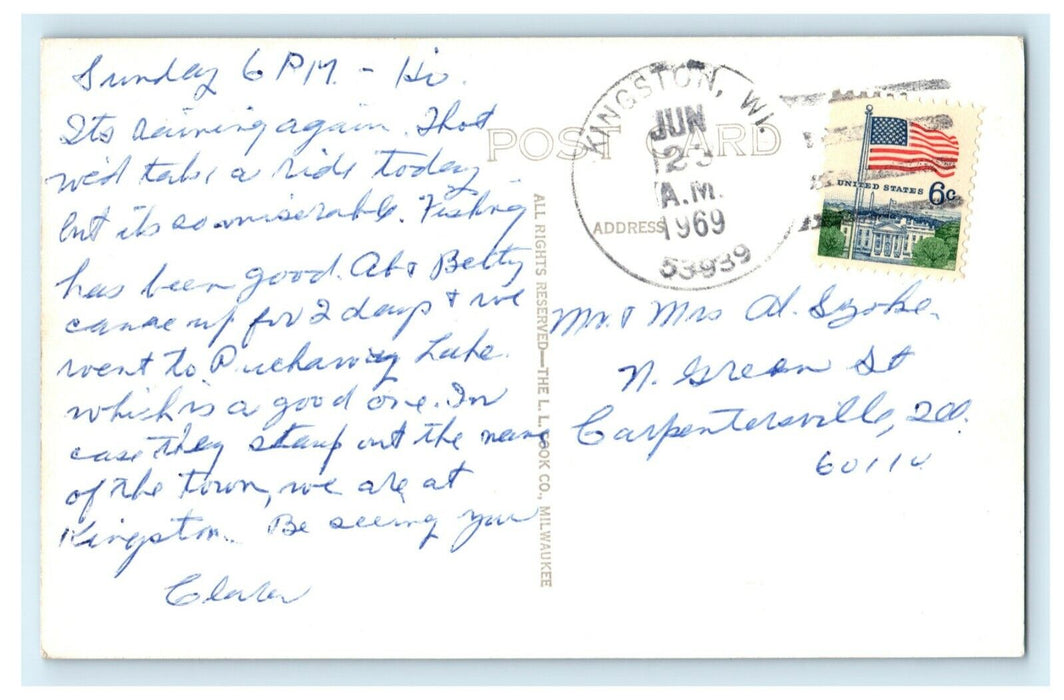 Sunday 6 PM. - Hi.
Its raining again. Thot
we'd take a ride today
but its so miserable. Fishing
has been good. Al & Betty
came up for 2 days & we
went to Puckaway Lake.
which is a good one. In
case they stamp out the name
of the town, we are at
Kingston. Be seeing you
Clara
POST CARD
ADDRESS
ALL RIGHTS RESERVED—THE L. L. COOK CO., MILWAUKEE
KINGSTON, WI.
JUN
23
A.M.
1969
53939
UNITED STATES 6c
Mr. & Mrs Al. Szoke.
N. Green St
Carpentersville, Ill.
60110